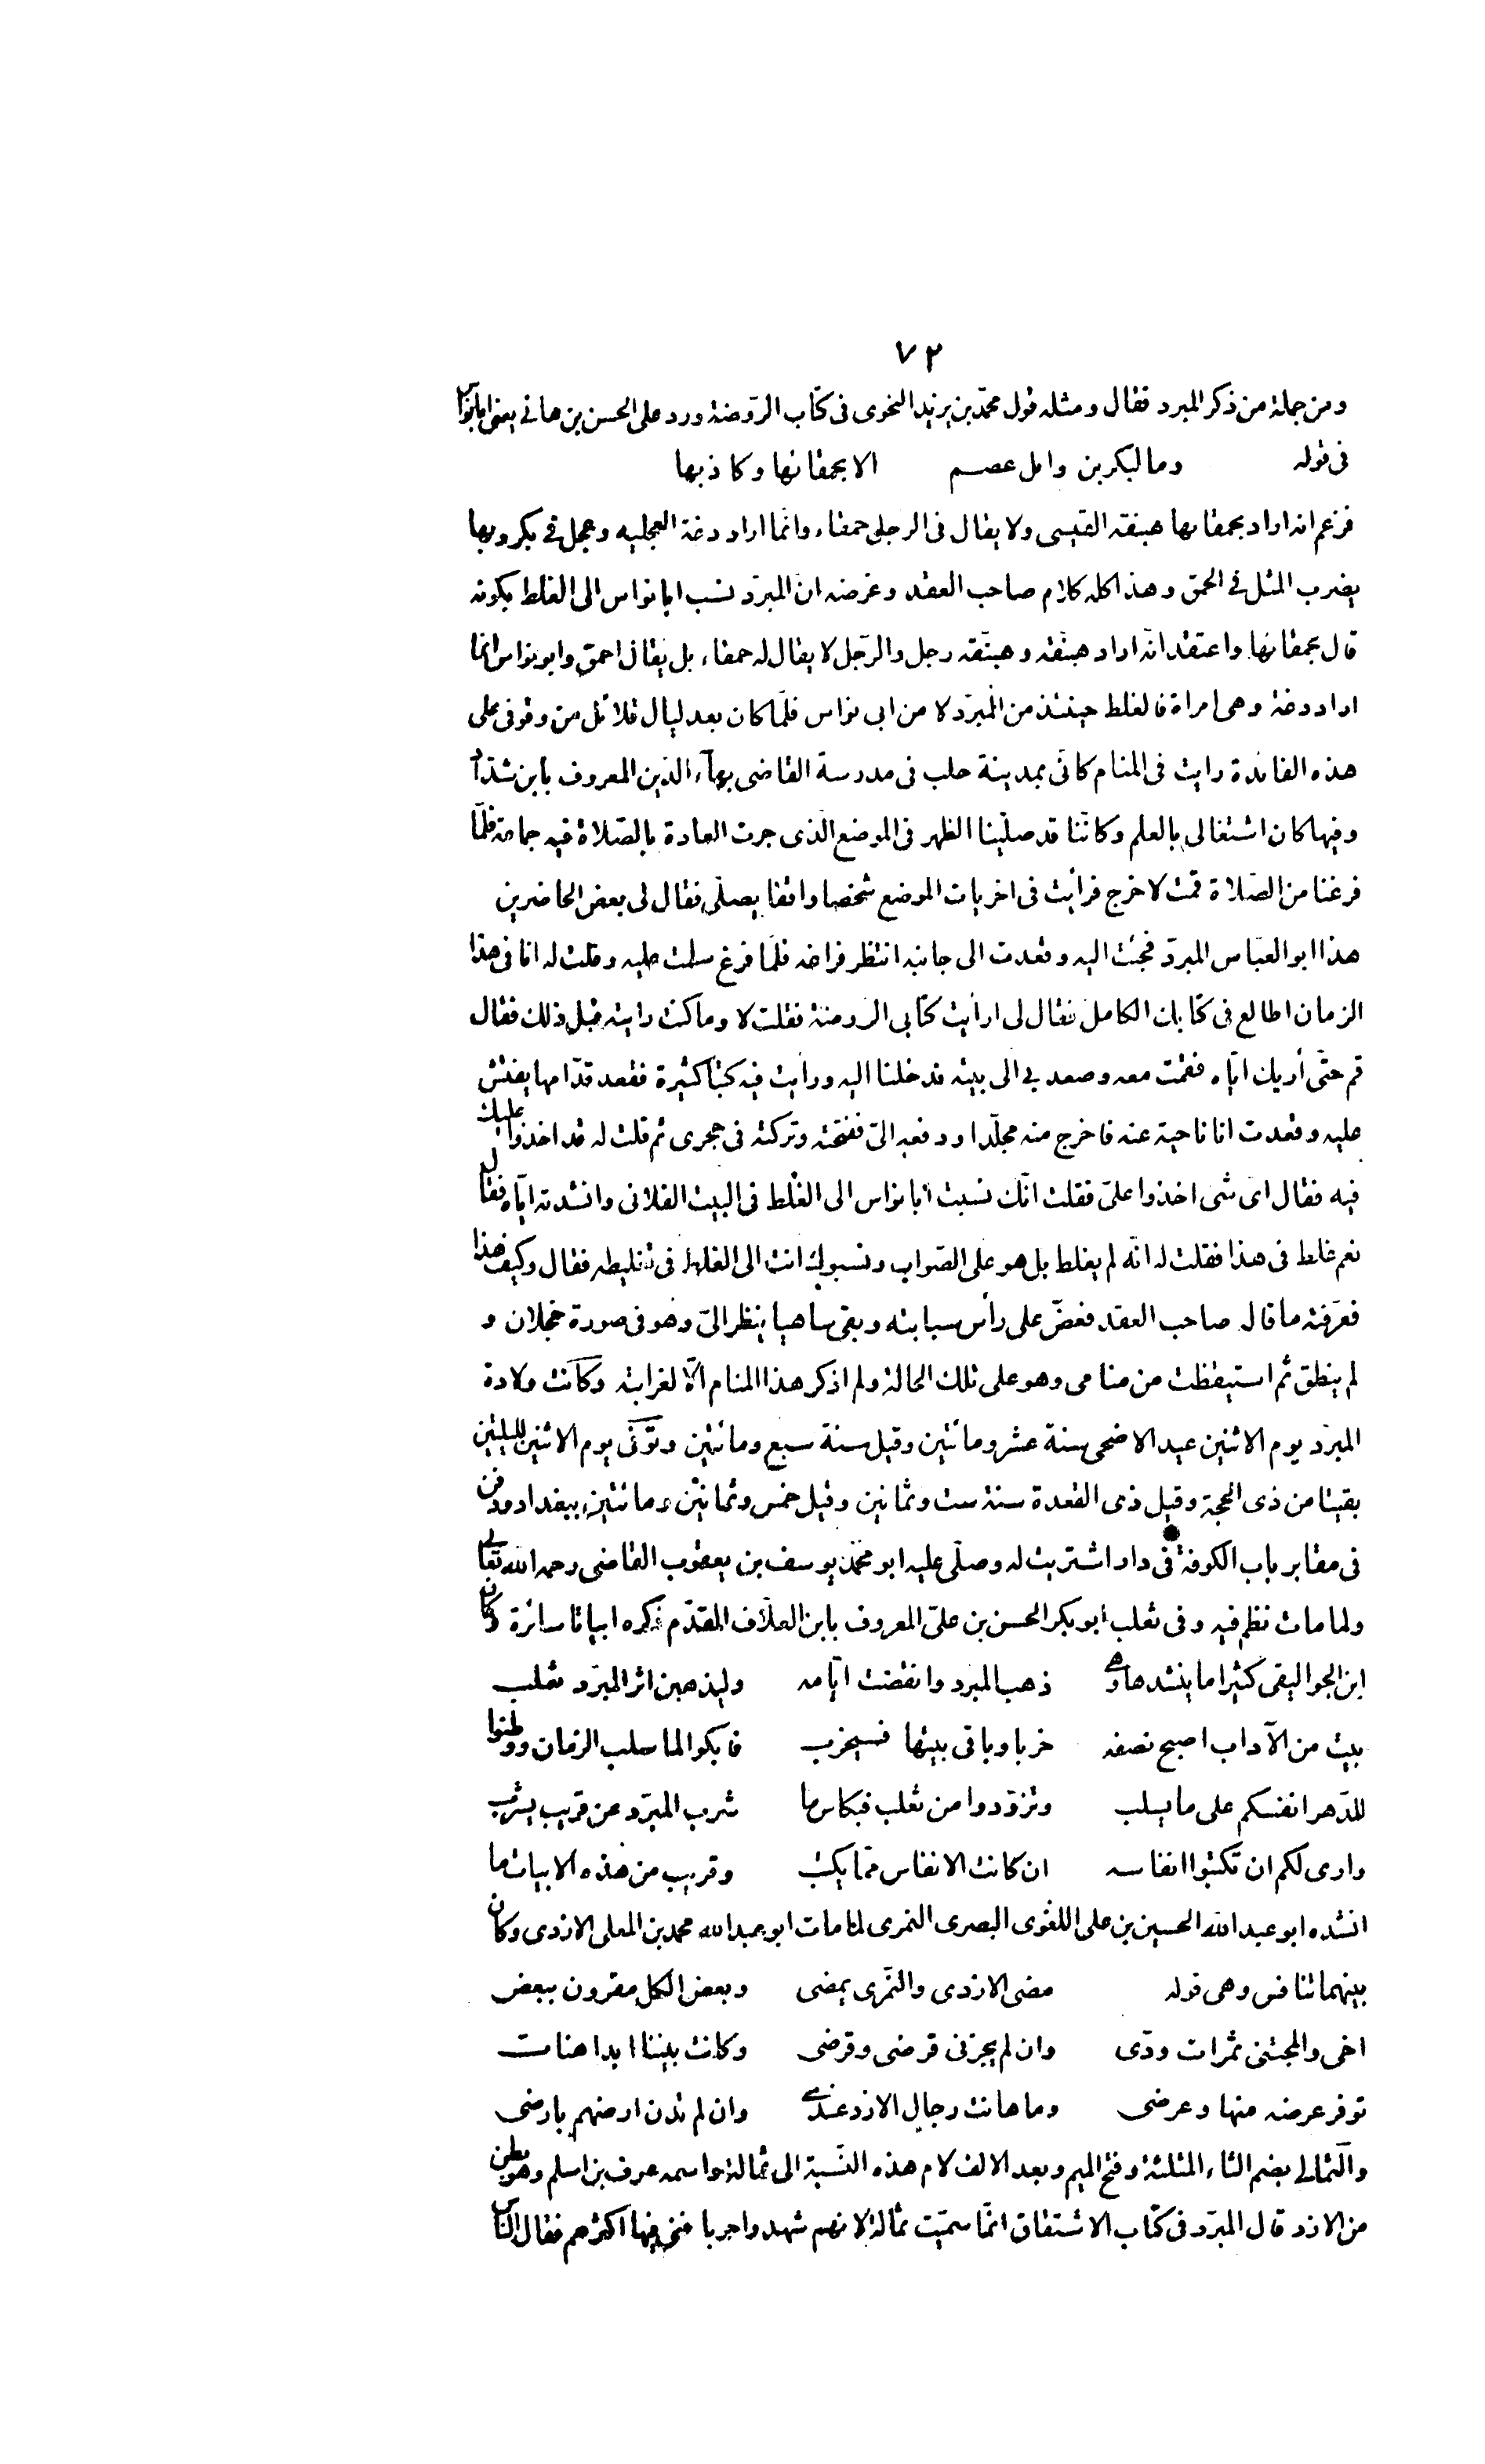 ٧٢
ومن جملة من ذكر المبرد فقال ومثله قول محمد بن يزيد النحوى فى كتاب الروضة ورد على الحسن بن هانى يعنى ابا نواس
فى قوله وما لبكر بن وايل عصم الا بحمقائها وكاذبها
فزعم انه اراد بحمقائها هبنقه القيسى ولا يقال فى الرجل حمقاء وانّما اراد دغة العجليه وعجل فى بكر وبها
يضرب المثل فى الحمق وهذا كله كلام صاحب العقد وغرضه انّ المبرّد نسب ابا نواس الى الغلط بكونه
قال بحمقائها واعتقد انّه اراد هبنّقه وهبنّقه رجل والرّجل لا يقال له حمقاء بل يقال احمق وابو نواس انّما
اراد دغة وهى امراة فالغلط حينئذ من المبرّد لا من ابى نواس فلمّا كان بعد ليال قلائل من وقوفى على
هذه الفائدة رايت فى المنام كانّى بمدينة حلب فى مدرسة القاضى بهآء الدّين المعروف بابن شدّاد
وفيها كان اشتغالى بالعلم وكانّنا قد صلّينا الظهر فى الموضع الّذى جرت العادة بالصّلاة فيه جماعة فلمّا
فرغنا من الصّلاة قمت لاخرج فرأيت فى اخريات الموضع شخصا واقفا يصلّى فقال لى بعض الحاضرين
هذا ابو العبّاس المبرّد فجئت اليه وقعدت الى جانبه انتظر فراغه فلمّا فرغ سلمت عليه وقلت له انا فى هذا
الزمان اطالع فى كتابك الكامل فقال لى ارأيت كتابى الروضة فقلت لا وما كنت رايته قبل ذلك فقال
قم حتّى أريك ايّاه فقمت معه وصعد بى الى بيته فدخلنا اليه ورأيت فيه كتبا كثيرة فقعد قدّامها يفتش
عليه وقعدت انا ناحية عنه فاخرج منه مجلّدا ودفعه الىّ ففتحته وتركته فى حجرى ثم قلت له قد اخذوا عليك
فيه فقال اى شى اخذوا علىّ فقلت انّك نسبت ابا نواس الى الغلط فى البيت الفلانى وانشدته ايّاه فقال
نعم غلط فى هذا فقلت له انّه لم يغلط بل هو على الصّواب ونسبوك انت الى الغلط فى تغليطه فقال وكيف هذا
فعرّفته ما قال صاحب العقد فعضّ على رأس سبابته وبقى ساهيا ينظر الىّ وهو فى صورة خجلان و
لم ينطق ثم استيقظت من منامى وهو على تلك الحالة ولم اذكر هذا المنام الّا لغرابته وكآنت ولادة
المبرّد يوم الاثنين عيد الاضحى سنة عشر ومائتين وقيل سنة سبع ومائتين وتوّفّى يوم الاثنين لليلتين
بقيتا من ذى الحجة وقيل ذى القعدة سنة ست وثمانين وقيل خمس وثمانين ومائتين ببغداد ودفن
فى مقابر باب الكوفة فى دار اشتريت له وصلّى عليه ابو محمّد يوسف بن يعقوب القاضى رحمه الله تعالى
ولما مات نظم فيه وفى ثعلب ابو بكر الحسن بن علىّ المعروف بابن العلّاف المقدّم ذكره ابياتا سائرة وكان
ابن الجواليقى كثيرا ما ينشدها وهى ذهب المبرد وانقضت ايّامه وليذهبن اثر المبرّد ثعلب
بيت من الآداب اصبح نصفه خربا وباقى بيتها فسيخرب فابكوا لما سلب الزمان ووطنوا
للدّهر انفسكم على ما يسلب وتزوّدوا من ثعلب فبكاس ما شرب المبرّد عن قريب يشرب
وارى لكم ان تكتبوا انفاسه ان كانت الانفاس ممّا يكتب وقريب من هذه الابيات ما
انشده ابو عبد الله الحسين بن على اللغوى البصرى النمرى لمّا مات ابو عبد الله محمد بن المعلى الازدى وكان
بينهما تنافس وهى قوله مضى الازدى والنّمرى يمضى وبعض الكل مقرون ببعض
اخى والمجتنى ثمرات ودّى وان لم يجزنى قرضى وقرضى وكانت بيننا ابدا هنات
توفر عرضه منها وعرضى وما هانت رجال الازد عندى وان لم تدن ارضهم بارضى
والثّمالى بضم الثاء المثلثة وفتح الميم وبعد الالف لام هذه النّسبة الى ثمالة واسمه عوف بن اسلم وهو بطن
من الازد قال المبرّد فى كتاب الاشتقاق انّما سمّيت ثمالة لانهم شهدوا حربا فنى فيها اكثرهم فقال النّاس